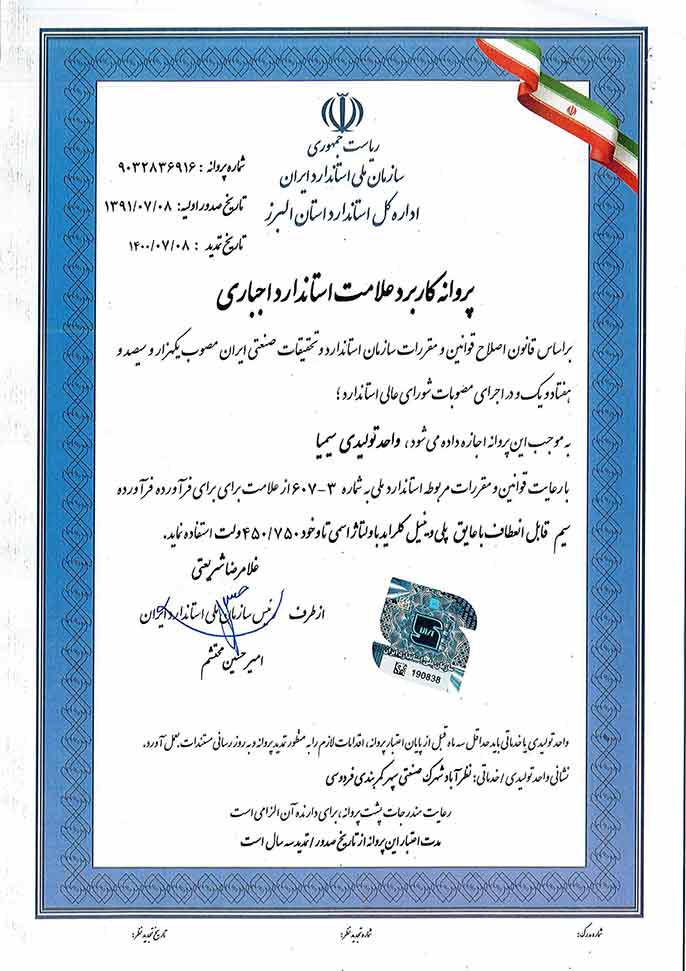 ریاست جمهوری
سازمان ملی استاندارد ایران
اداره کل استاندارد استان البرز
شماره پروانه : ۹۰۳۲۸۳۶۹۱۶
تاریخ صدور اولیه: ۱۳۹۱/۰۷/۰۸
تاریخ تمدید : ۱۴۰۰/۰۷/۰۸
پروانه کاربرد علامت استاندارد اجباری
براساس قانون اصلاح قوانین و مقررات سازمان استاندارد و تحقیقات صنعتی ایران مصوب یکهزار و سیصد و
هفتاد و یک و در اجرای مصوبات شورای عالی استاندارد ؛
به موجب این پروانه اجازه داده می شود ، واحد تولیدی سیمیا
با رعایت قوانین و مقررات مربوطه استاندارد ملی به شماره ۳-۶۰۷ از علامت برای برای فرآورده فرآورده
سیم قابل انعطاف با عایق پلی وینیل کلراید با ولتاژ اسمی تا و خود ۴۵۰/۷۵۰ ولت استفاده نماید.
غلامرضا شریعتی
از طرف رئیس سازمان ملی استاندارد ایران
امیر حسین محتشم
190838
واحد تولیدی یا خدماتی باید حداقل سه ماه قبل از پایان اعتبار پروانه، اقدامات لازم را به منظور تمدید پروانه و به روز رسانی مستندات بعمل آورد.
نشانی واحد تولیدی / خدماتی: نظرآباد شهرک صنعتی سپهر کمربندی فردوسی
رعایت مندرجات پشت پروانه، برای دارنده آن الزامی است
مدت اعتبار این پروانه از تاریخ صدور / تمدید سه سال است
شماره مدرک:
شماره تجدید نظر:
تاریخ تجدید نظر: